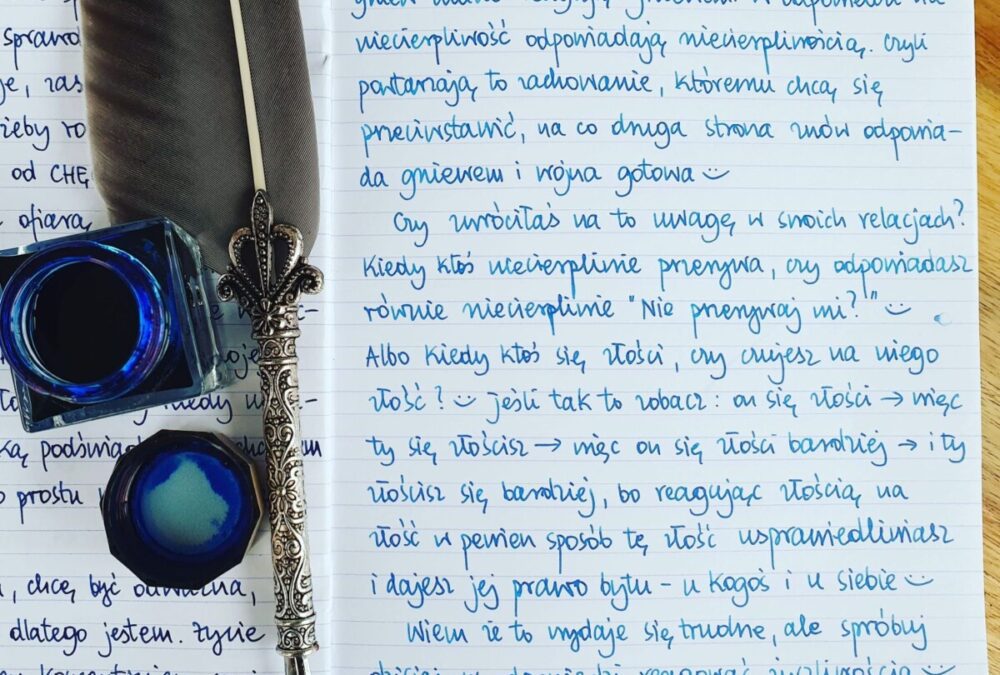 sprawd
je, zas
żeby ro
od CHĘ
ofiarą
ką podświad
o prostu
, chcę być odważna,
dlatego jestem. Życie
gniew reagują gniewem. W odpowiedzi na
niecierpliwość odpowiadają niecierpliwością. czyli
powtarzają to zachowanie, któremu chcą się
przeciwstawić, na co druga strona znów odpowia-
da gniewem i wojna gotowa
Czy zwróciłaś na to uwagę w swoich relacjach?
Kiedy ktoś niecierpliwie przerywa, czy odpowiadasz
równie niecierpliwie "Nie przerywaj mi?"
Albo kiedy ktoś się złości, czy czujesz na niego
złość? jeśli tak to zobacz: on się złości → więc
ty się złościsz → więc on się złości bardziej → i ty
złościsz się bardziej, bo reagując złością na
złość w pewien sposób tę złość usprawiedliwiasz
i dajesz jej prawo bytu - u kogoś i u siebie
Wiem że to wydaje się trudne, ale spróbuj
reagować życzliwością